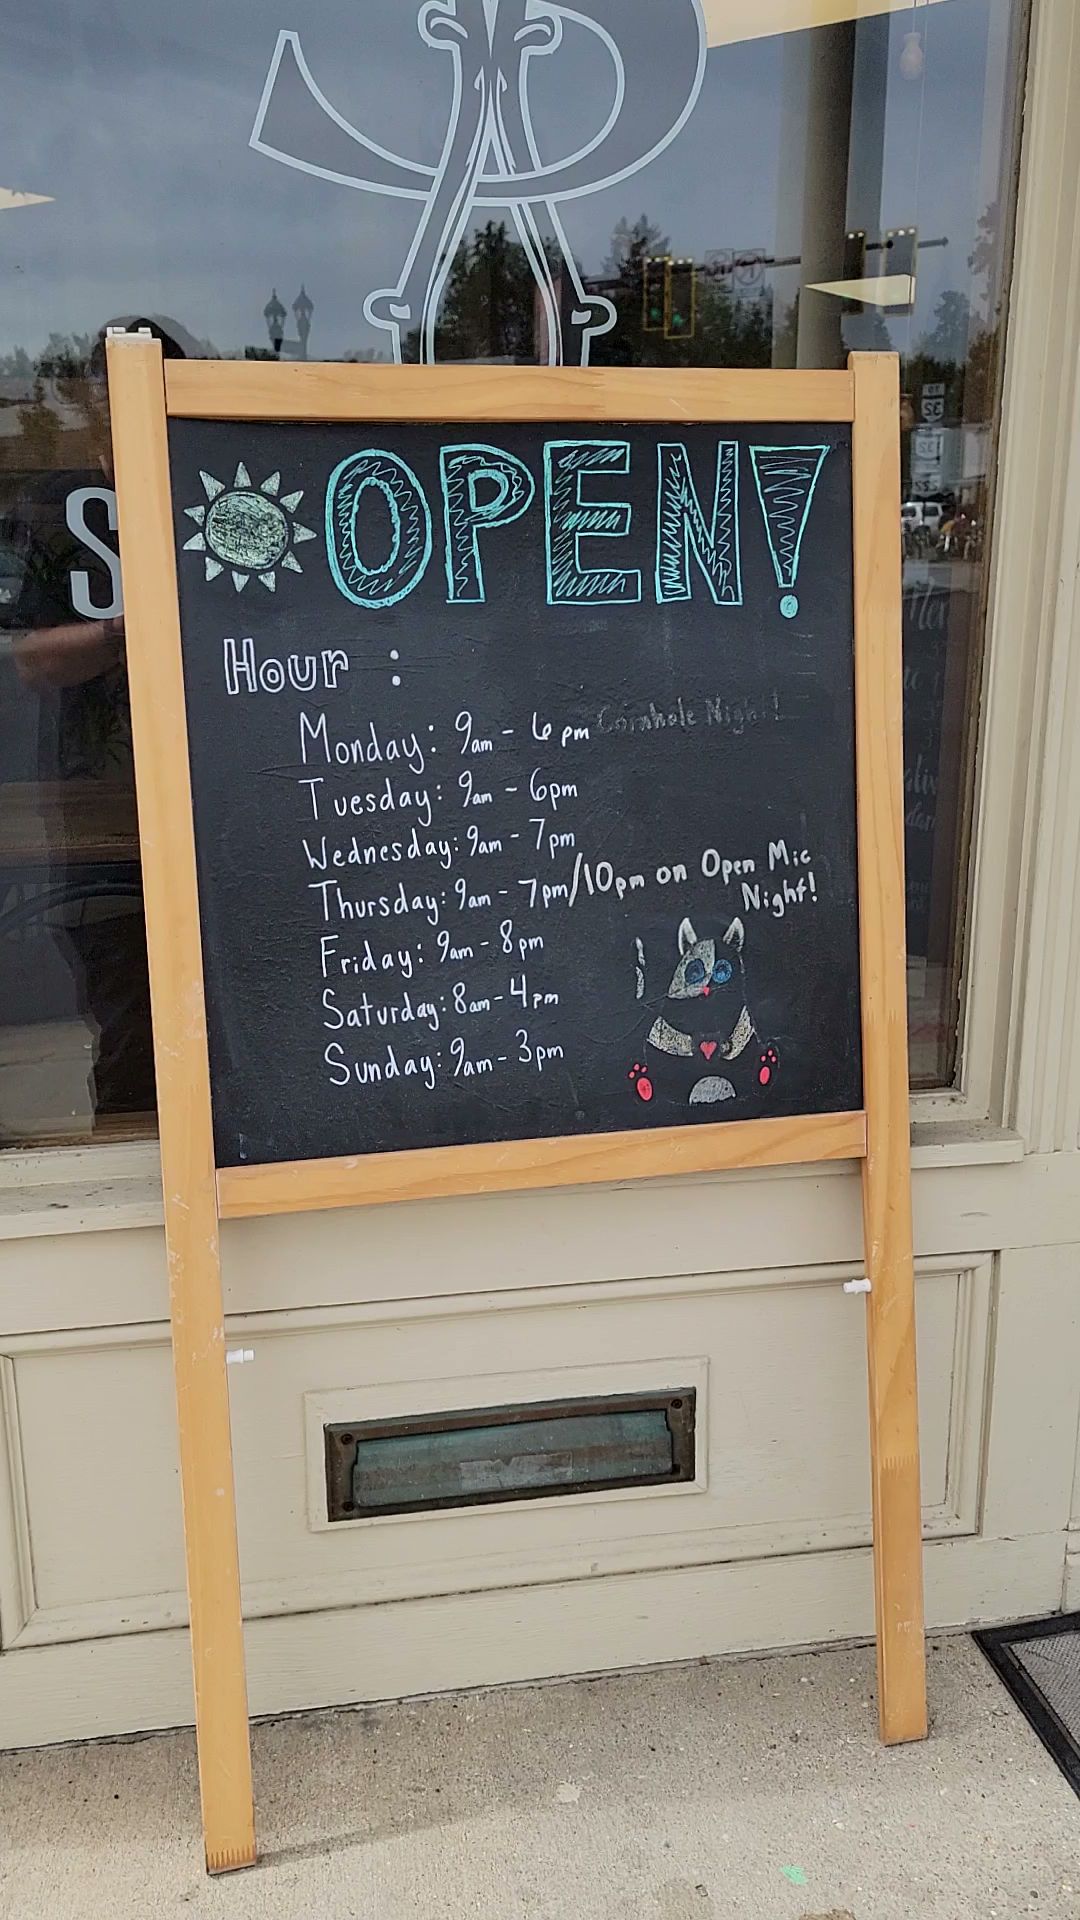 OPEN!
Hour :
Monday: 9am - 6pm Cornhole Night!
Tuesday: 9am - 6pm
Wednesday: 9am - 7pm
Thursday: 9am - 7pm/10pm on Open Mic
Night!
Friday: 9am - 8pm
Saturday: 8am - 4pm
Sunday: 9am - 3pm
S